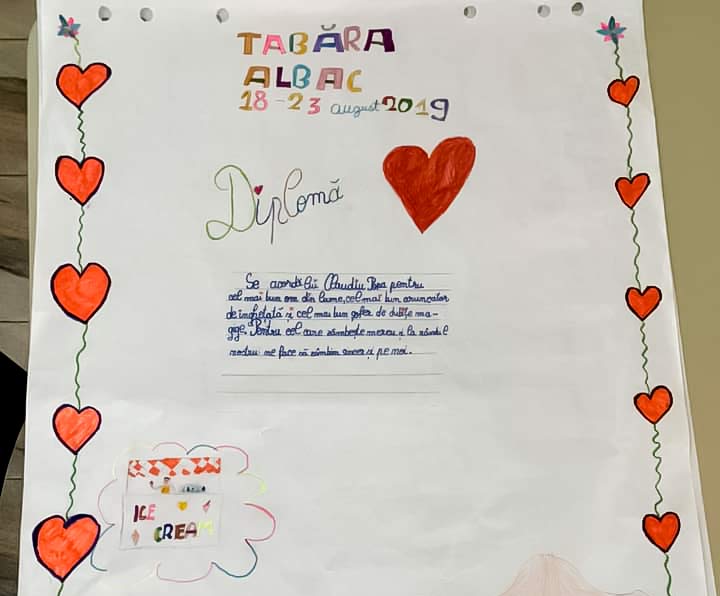 TABĂRA
ALBAC
18-23 august 2019
Diplomă
Se acordă lui Claudiu pentru
cel mai bun om din lume, cel mai bun aruncător
de înghețată și cel mai bun șofer de dubițe ma-
gge. Pentru cel care zâmbește mereu și la rândul
nostru ne face să zâmbim mereu și pe noi.
ICE
CREAM